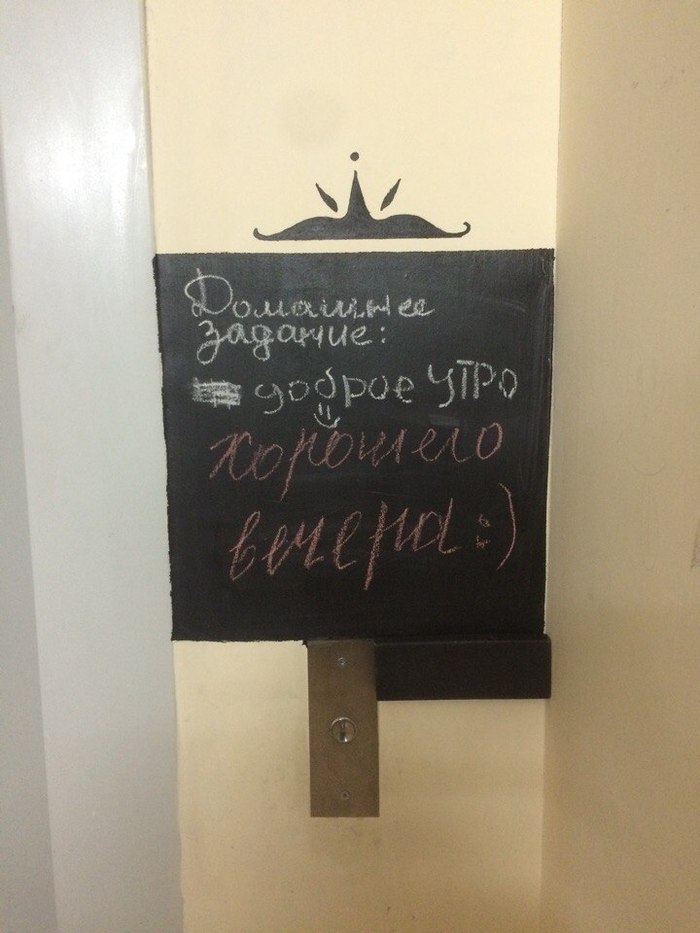 Домашнее
задание:
доброе УТРО
хорошего
вечера:)